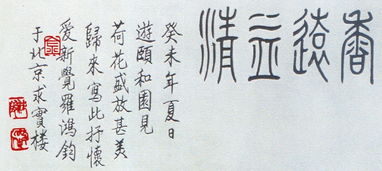 香遠益清
癸未年夏日
遊頤和園見
荷花盛放甚美
歸來寫此抒懷
爱新覺羅鴻鈞
于北京求實楼